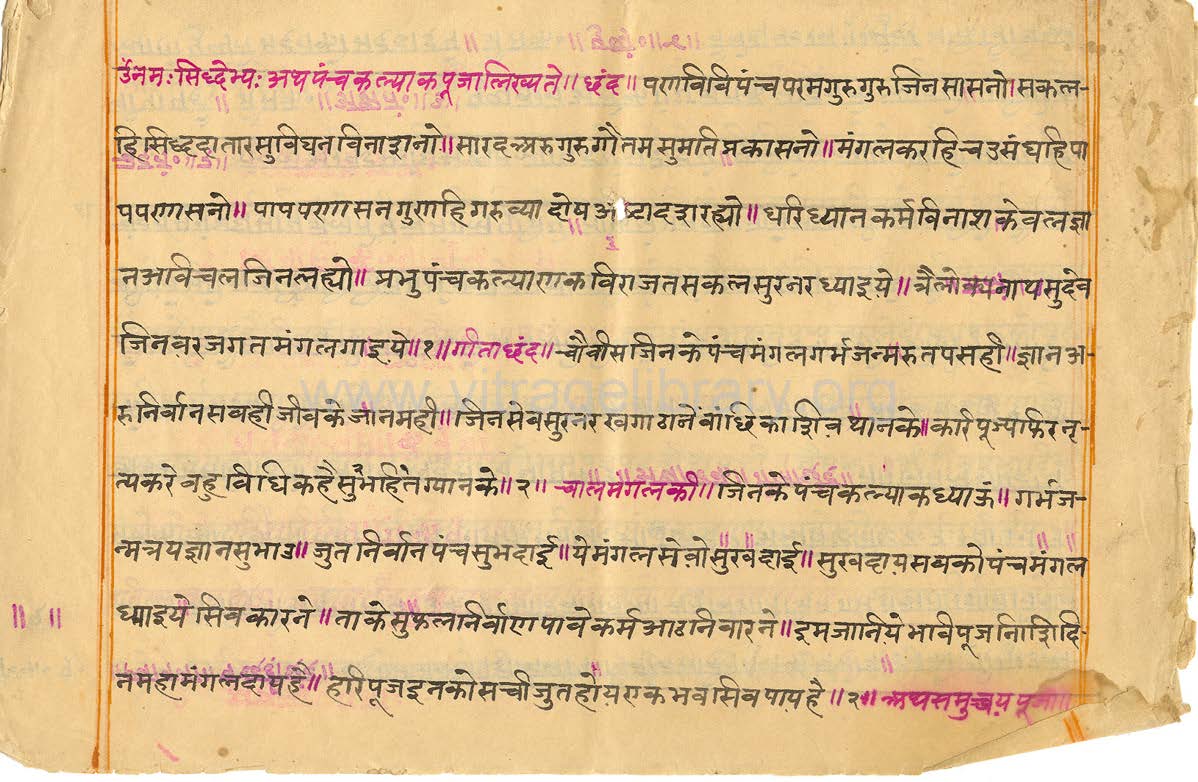 उँनमःसिद्धेभ्यः अथपंचकल्याकपूजालिख्यते॥ छंद॥ पणविविपंचपरमगुरुगुरुजिनसासनो। सकल-
हिसिद्धदातारसुविघनविनाशनो॥ सारदअरुगुरुगौतमसुमतिप्रकासनो॥ मंगलकरहिचउसंघहिपा
पपणासनो॥ पापपणासनगुणहिगरुव्यादोषअष्टादशरह्यो॥ धरिध्यानकर्मविनाशकेवलज्ञा
नअविचलजिनलह्यो॥ प्रभुपंचकल्याणकविराजतसकलसुरनरध्याइये॥ त्रैलोक्यनाथसुदेव
जिनवरजगतमंगलगाइये॥१॥ गीताछंद॥ चौवीसजिनकेपंचमंगलगर्भजन्मरुतपसही॥ ज्ञानअ-
रुनिर्वानसवहीजीवकेजानमही॥ जिनसेवसुरनरखगाठाने
त्यकरेवहुविधिकहै ॥२॥ चालमंगलकी॥ जिनकेपंचकल्याकध्याऊं॥ गर्भज-
न्मत्रयज्ञानसुभाउ॥ जुतनिर्वानपंचसुभदाई॥ येमंगलसेवोसुखदाई॥ सुखदायसवकोपंचमंगल
ध्याइयेसिवकारने॥ ताकेसुफलनिर्वाणपावेकर्मआठनिवारने॥ इमजानियं
नमहामंगलदायहै॥ हरिपूजइनकोसचीजुतहोयएकभवसिवपायहै॥२॥ अथसमुच्चयपूजा॥
www.vitragelibrary.org